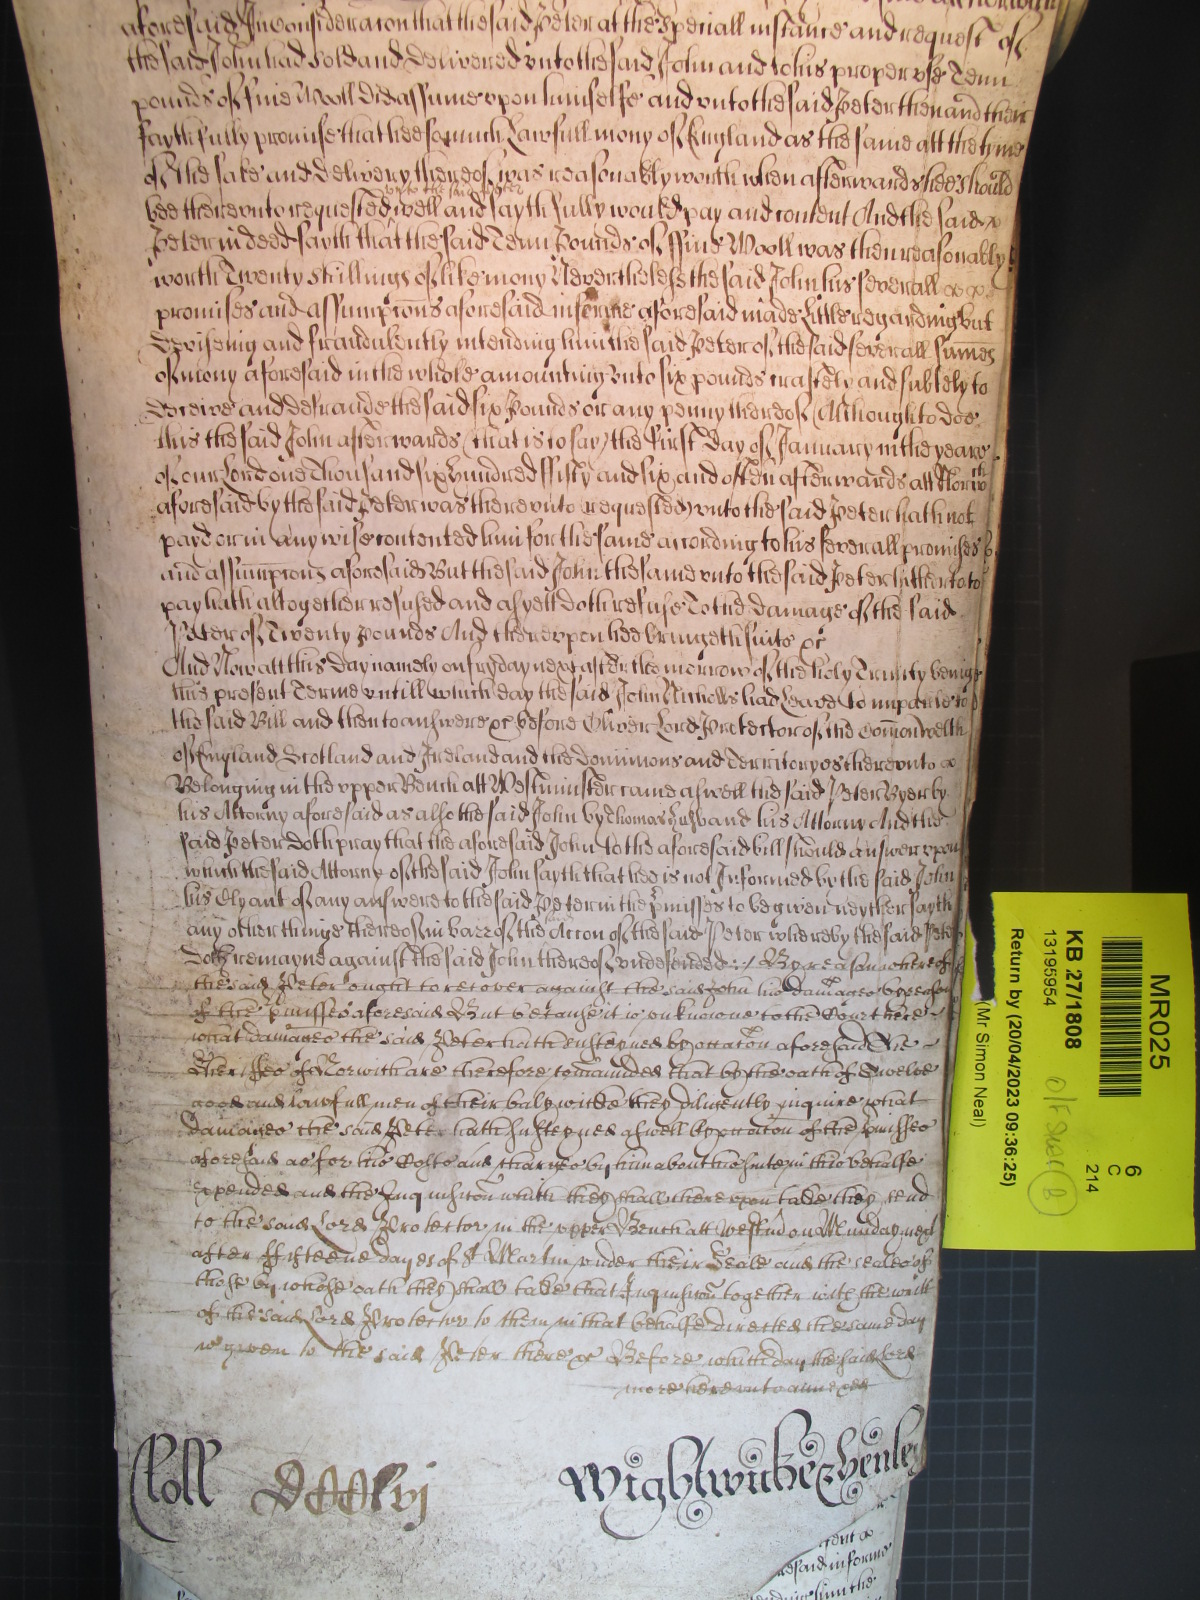 aforesaid In consideracon that the said Peter at the speciall instance and request of
the said John had sold and delivered unto the said John and to his proper use Tenn
pounds of fine Wooll did assume upon himselfe and unto the said Peter then and there
faythfully promise that hee so much Lawfull mony of England as the same att the tyme
of the sale and delivery thereof was reasonably worth when afterwards hee should
unto the said Peter
bee thereunto requested well and faythfully would pay and content And the said
Peter in deed sayth that the said Tenn Pounds of ffine Wooll was then reasonably
worth Twenty shillings of like mony Neverthelesse the said John his severall
promises and assumpcons aforesaid in forme aforesaid made Little regarding but
deviseing and fraudulently intending him the said Peter of the said severall summes
of mony aforesaid in the whole amounting unto six pounds craftely and subtely to
deceive and defraude the said six Pounds or any penny thereof (Although to doe
this the said John afterwards (that is to say) the first day of January in the yeare
of our Lord one Thousand six hundred ffifty and six and often afterwards att Norwch
aforesaid by the said Peter was thereunto requested) unto the said Peter hath not
payd or in any wise contented him for the same according to his severall promises
and assumpcons aforesaid But the said John the same unto the said Peter hitherto to
pay hath altogether refused and as yett doth refuse To the damage of the said
Peter of Twenty Pounds And thereupon hee bringeth suite &c
And Now att this day namely on fryday next after the morrow of the holy Trinity beinge
this present Terme untill which day the said John Nicholls had Leave to imparle to
the said Bill and then to answere &c before Oliver Lord Protector of the Comonwelth
of England Scotland and Ireland and the Dominions and Territoryes thereunto
Belonging in the upper Bench att Westminster came aswell the said Peter Byer by
his Attorny aforesaid as also the said John by Thomas husband his Attorny And the
said Peter doth pray that the aforesaid John to the aforesaid bill should answer upon
which the said Attorny of the said John sayth that hee is not Informed by the said John
his Clyant of any answere to the said Peter in the pmisses to be given neyther sayth
any other thinge thereof in barr of the Accon of the said Peter whereby the said Peter
doth remayne against the said John thereof undefended By reason whereof
the said Peter ought to recover against the said John his damages by reason
of the pmisses aforesaid But because it is unknowne to the Court here
what damages the said Peter hath susteyned by occacon aforesaid The
Sheriffes of Norwich are therefore comaunded that by the oath of twelve
good and lawfull men of their balywicke they diligently inquire what
damages the said Peter hath susteyned aswell by occacon of the pmisses
aforesaid as for his Costs and charges by him about his suite in this behalfe
expended and the Inquisicon which they shall thereupon take they send
to the said Lord Protector in the upper Bench att Westm on Munday next
after ffifteene dayes of St Martin under their Seale and the seales of
those by whose oath they shall take that Inquisicon together with the writt
of the said Lord Protector to them in that behalfe directed the same day
is given to the said Peter there &c Before which day the said Lord
more hereunto annexed
Roll DCCCxvj Wightwicke & Henley
MR025
6
C
214
KB 27/1808
13195954
Return by (20/04/2023 09:36:25)
(Mr Simon Neal)
esaid in forme